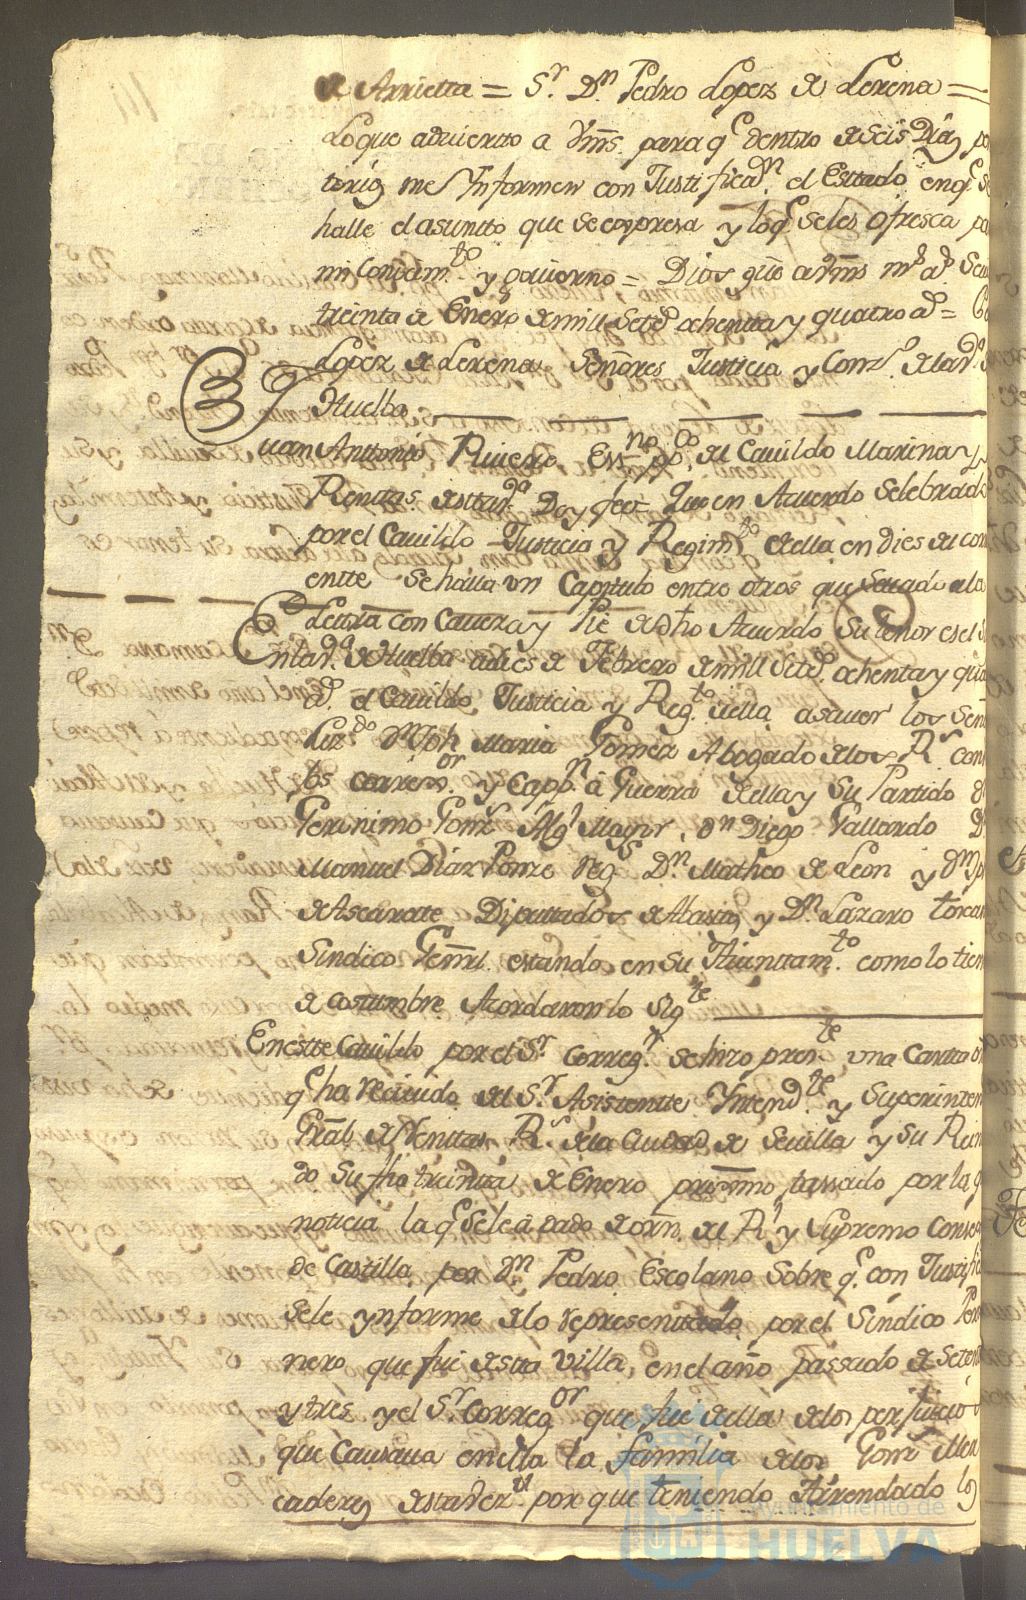 de Arrietta = Sr. Dn. Pedro Lopez de Lerena =
Loque advierto a Vms. para qe dentro de seis Dias
me Ynformen con Justificazn. el Esttado enqe se
halle el asuntto que se expresa y loqe seles ofresca
mi Conocimto. y govierno = Dios gue a Vms ms. as.
treinta de Enero de mill Settos. ochentta y quatro as =
Lopez de Lerena Señores Justicia y Conzo. dela Va. de
Huelba
Juan Anttonio Rivero Essno. pco. del Cavildo Marina y
Renttas destta Va. Doy fee: Que en Acuerdo Selebrado
por el Cavildo Justicia y Regimto. deella en dies del corri
entte se halla vn Capitulo entre otros que Sacado ala
Lettra con Cavesa y Pie de dho Acuerdo Su tenor es el
En la Va. de Huelba a dies de Febrero de mill Settos. ochenta y qua
as. el Cavildo Justicia y Regto. deella asaver los Señ
Lizdo. Dn Joph Maria Gomez Abogado delos Rs. Con
sos correxor. y Cappn. a Guerra deella y Su Partido
Geronimo Gomz Algl Mayor, Dn Diego Gallardo
Manuel Diaz Ponze Regs Dn. Matheo de Leon y Dn
de Ascarate Diputtados de Abastos y Dn. Lazaro
Sindico Genrl. estando en su Aiunttamto. como lo tien
de costumbre Acordaron lo Sigte
En estte Cavildo por el Sr. Corregr. se hizo preste. una Cartta
qe ha recivido del Sr. Asistentte Yntendte. y Superinten
Gral de Renttas Rs. dela Ciudad de Sevilla y su Rein
do su fha treintta de Enero proximo passado por la
noticia la qe sele a dado de orn. del Rl y Supremo Conse
de Castilla por Dn Pedro Escolano Sobre qe. con Justifi
sele ynforme delo representtado por el Sindico Perso
nero que fue destta villa, en el año passado de Seten
y tres y el Sr. Corregor que fue deella delos perjuicios
que Causava en ella la familia delos Gomz Mer
caderes de por que teniendo Arrendado los
Ayuntamiento de
HUELVA